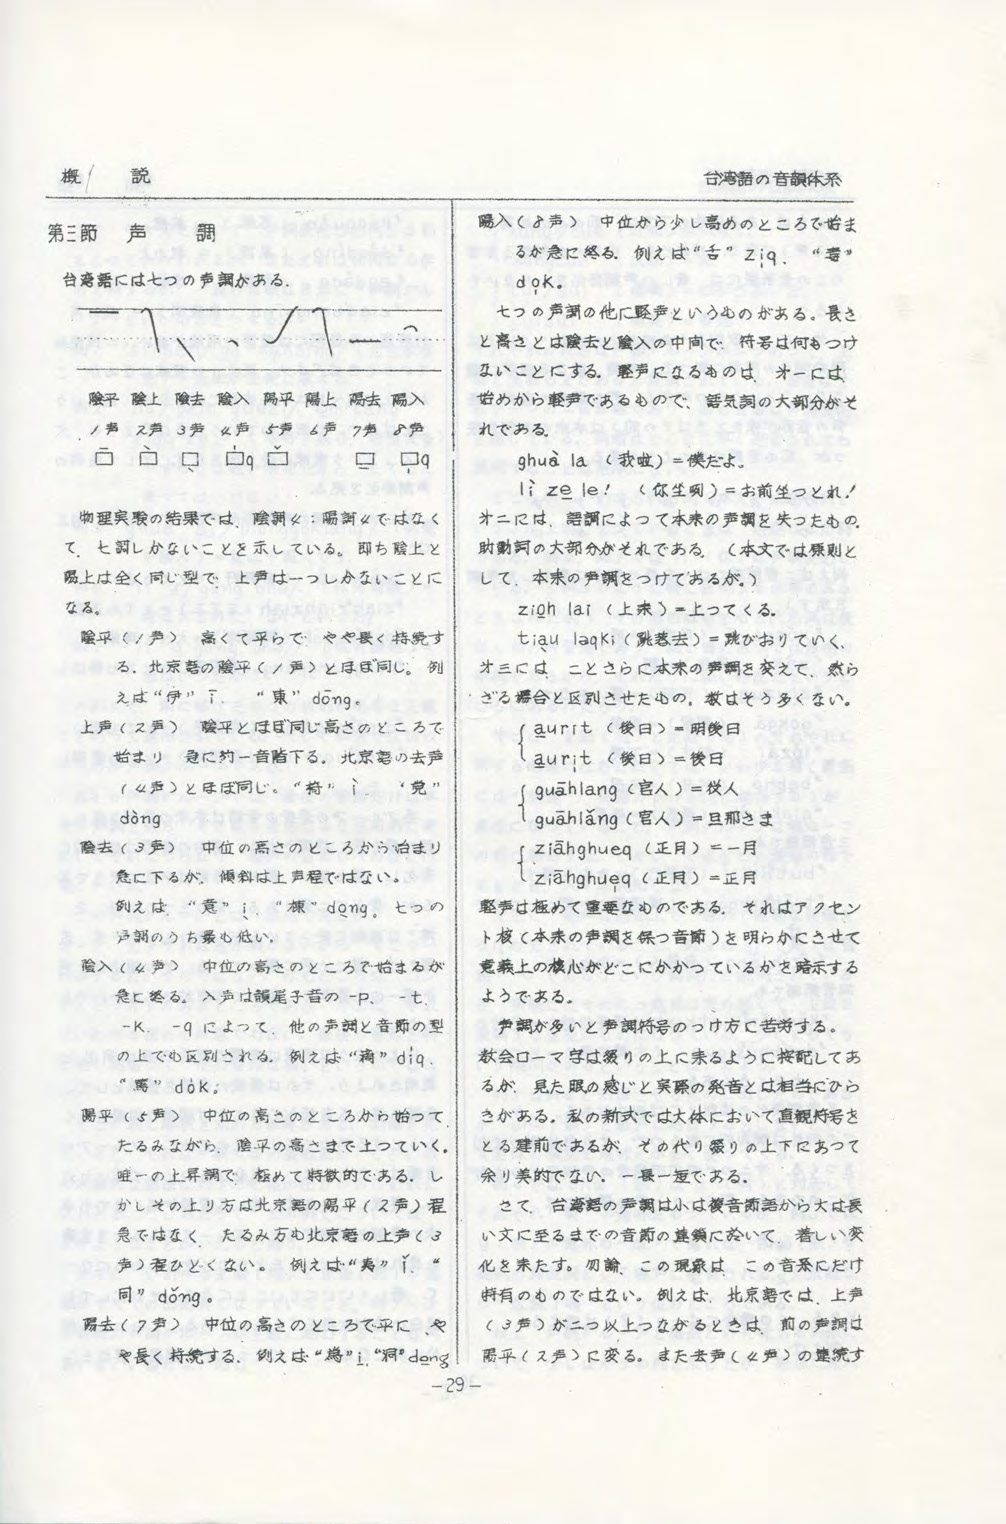 概 説
台湾語の音韻体系
第三節 声 調
台湾語には七つの声調がある.
陰平 陰上 陰去 陰入 陽平 陽上 陽去 陽入
1声 2声 3声 4声 5声 6声 7声 8声
□̄ □̀ □̖ □̍q □̌ □̠ □̩q
物理実験の結果では, 陰調4：陽調4ではなく
て, 七調しかないことを示している。即ち陰上と
陽上は全く同じ型で, 上声は一つしかないことに
なる。
陰平(1声) 高くて平らで, やや長く持続す
る. 北京語の陰平(1声)とほぼ同じ. 例
えば“伊” ī. “東” dōng。
上声(2声) 陰平とほぼ同じ高さのところで
始まり, 急に約一音階下る. 北京語の去声
(4声)とほぼ同じ。“椅” ì. “党”
dòng
陰去(3声) 中位の高さのところから始まり
急に下るが, 傾斜は上声程ではない。
例えば, “意” i̖. “棟” do̖ng。七つの
声調のうち最も低い.
陰入(4声) 中位の高さのところで始まるが
急に終る。入声は韻尾子音の -p. -t.
-k. -q によって, 他の声調と音節の型
の上でも区別される. 例えば “滴” di̍q.
“篤” do̍k.
陽平(5声) 中位の高さのところから始って
たるみながら, 陰平の高さまで上っていく.
唯一の上昇調で, 極めて特徴的である. し
かしその上り方は北京語の陽平(2声)程
急ではなく, たるみ方も北京語の上声(3
声)程ひどくない。例えば“夷” ǐ. “
同” dǒng。
陽去(7声) 中位の高さのところで平に, や
や長く持続する. 例えば i̠. “洞” do̠ng
陽入(8声) 中位から少し高めのところで始ま
るが急に終る. 例えば“舌” zi̩q. “毒”
do̩k.
七つの声調の他に軽声というものがある。長さ
と高さとは陰去と陰入の中間で, 符号は何もつけ
ないことにする。軽声になるものは, 才一には,
始めから軽声であるもので, 語気詞の大部分がそ
れである.
ghuà la (我啦)＝僕だよ。
lì ze̠ le! (你坐咧)＝お前坐っとれ!
才二には, 語調によって本来の声調を失ったもの.
助動詞の大部分がそれである. (本文では原則と
して, 本来の声調をつけてあるが。)
zioh lai (上来)＝上ってくる.
tia̖u laqki (跳落去)＝跳びおりていく.
才三には, ことさらに本来の声調を変えて, 然ら
ざる場合と区別させたもの. 数はそう多くない。
a̠urit (後日)＝明後日
auri̩t (後日)＝後日
guāhlang (官人)＝役人
guāhlǎng (官人)＝旦那さま
ziāhghueq (正月)＝一月
ziāhghue̩q (正月)＝正月
軽声は極めて重要なものである. それはアクセン
ト核(本来の声調を保つ音節)を明らかにさせて
意義上の核心がどこにかかっているかを暗示する
ようである。
声調が多いと声調符号のつけ方に苦労する。
教会ローマ字は綴りの上に来るように按配してあ
るが, 見た眼の感じと実際の発音とは相当にひら
きがある。私の新式では大体において直観符号を
とる建前であるが, その代り綴りの上下にあって
余り美的でない. 一長一短である.
さて, 台湾語の声調は小は複音節語から大は長
い文に至るまでの音節の連鎖に於いて, 著しい変
化を来たす。勿論, この現象は, この音系にだけ
特有のものではない. 例えば, 北京語では, 上声
(3声)が二つ以上つながるときは, 前の声調は
陽平(2声)に変る。また去声(4声)の連続す
-29-